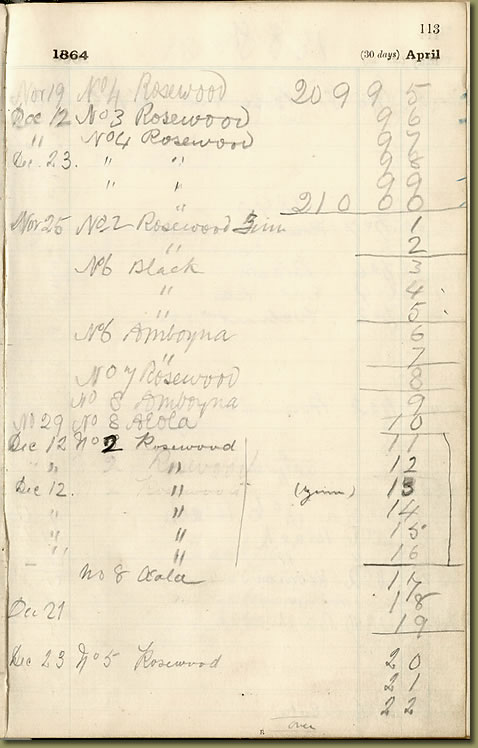 113
1864 (30 days) April
Nov 19 No 4 Rosewood 20 9 9 5
Dec 12 No 3 Rosewood 9 6
" No 4 Rosewood 9 7
Dec. 23. " " 9 8
" " 9 9
" 21 0 0 0
Nov 25 No 2 Rosewood 1
" 2
No 6 Black 3
" 4
" 5
No 6 Amboyna 6
" 7
No 7 Rosewood 8
No 8 Amboyna 9
No 29 No 8 Aeola 10
Dec 12 No 2 Rosewood 11
" Rosewood " 12
Dec 12. " 13
" " 14
" " 15
" " 16
No 8 Aeola 17
Dec 21 18
19
Dec 23 No 5 Rosewood 20
21
22
over